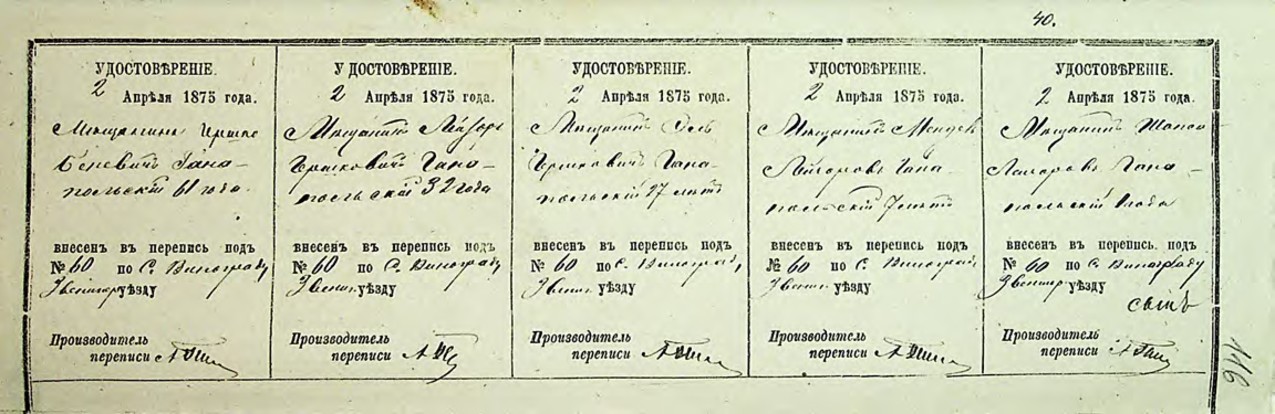 40.
УДОСТОВѢРЕНІЕ.
2 Апрѣля 1875 года.
Мещанинъ Гершко
Беневичъ Гано-
польскій 61 года.
внесенъ въ перепись подъ
№ 60 по С. Винограду,
Звениго уѣзду
Производитель
переписи
УДОСТОВѢРЕНІЕ.
2 Апрѣля 1875 года.
Мещанинъ Лазоръ
Гершковичъ Гано-
польскій 32 года
внесенъ въ перепись подъ
№ 60 по С. Винограду,
Звениг. уѣзду
Производитель
переписи
УДОСТОВѢРЕНІЕ.
2 Апрѣля 1875 года.
Мещанинъ
Гершковичъ Гана-
польскій 27 лѣтъ
внесенъ въ перепись подъ
№ 60 по С. Винограду,
Звениг. уѣзду
Производитель
переписи
УДОСТОВѢРЕНІЕ.
2 Апрѣля 1875 года.
Мещанинъ
Лейзоровъ Гана-
польскій 7 лѣтъ
внесенъ въ перепись подъ
№ 60 по С. Виноград
Звениг. уѣзду
Производитель
переписи
УДОСТОВѢРЕНІЕ.
2 Апрѣля 1875 года.
Мещанинъ
Лазоровъ Гано-
польскій года
внесенъ въ перепись подъ
№ 60 по С. Винограду
Звениг уѣзду
сынъ
Производитель
переписи
116